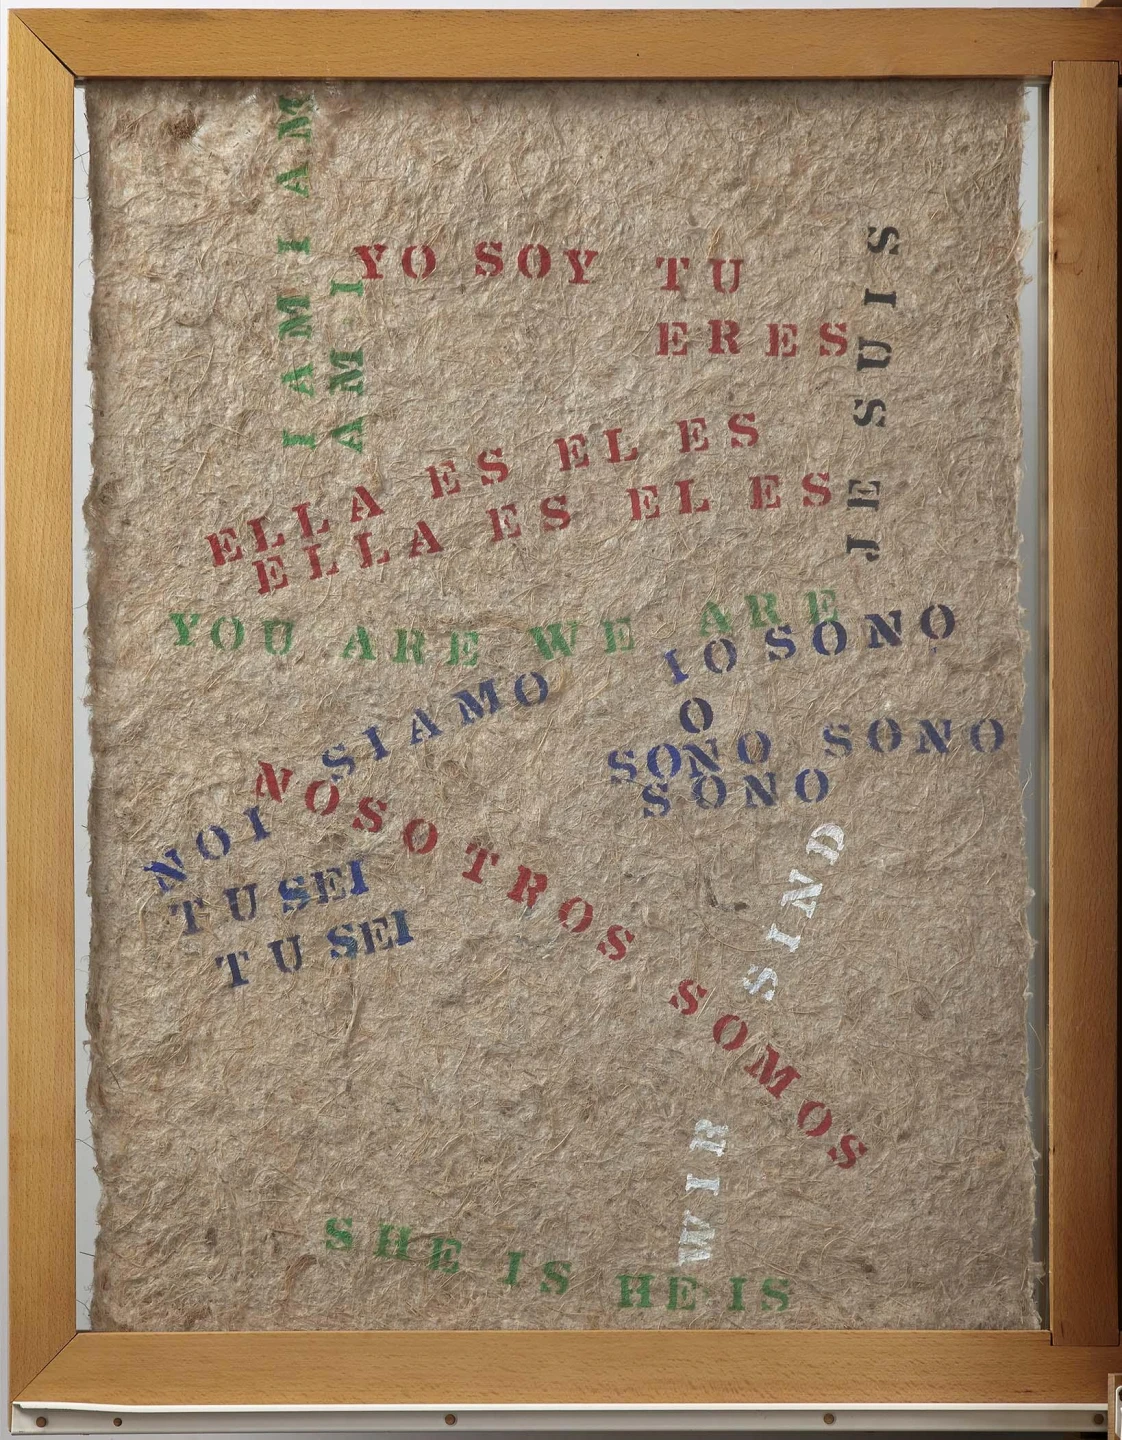 I AM I AM
AM I
YO SOY TU
ERES
JE SUIS
ELLA ES EL ES
ELLA ES EL ES
YOU ARE WE ARE
IO SONO
O
SONO SONO SONO
SONO
NOI SIAMO
NOSOTROS SOMOS
TU SEI
TU SEI
WIR SIND
SHE IS HE IS